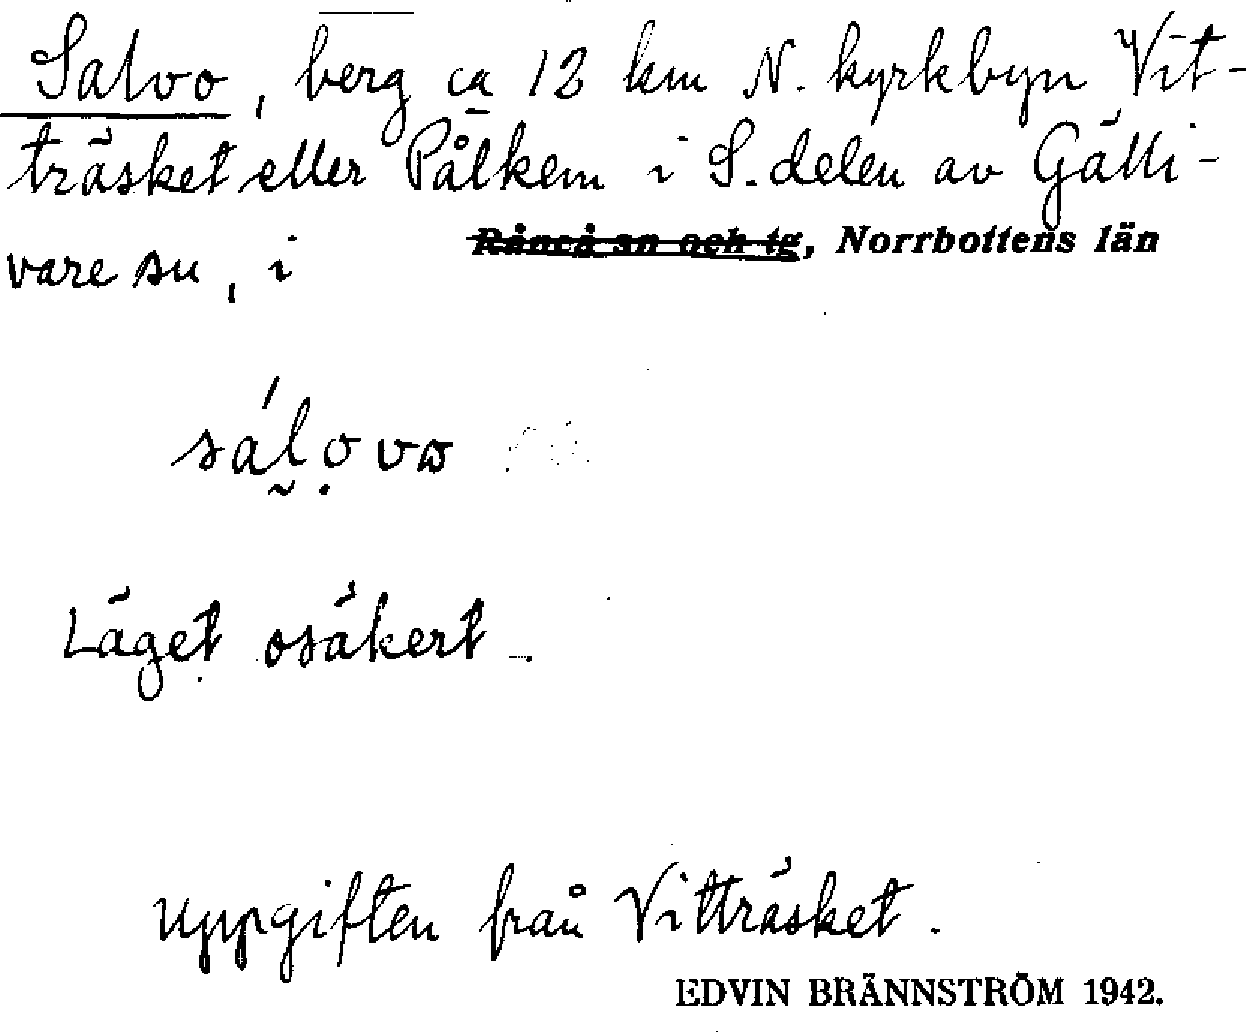 Salvo, berg ca 12 km N. kyrkbyn Vit-
träsket eller Pålkem i S. delen av Gälli-
vare sn, i Råneå sn och tg, Norrbottens län
sál̰ọvɷ
Läget osäkert.
Uppgiften från Vitträsket.
EDVIN BRÄNNSTRÖM 1942.